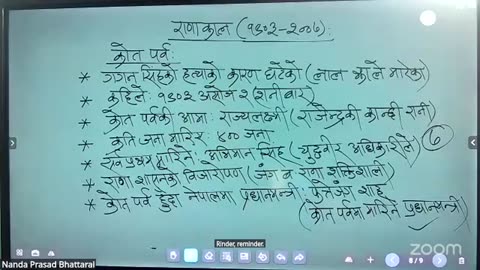 राणाकाल (१९०३-२००७):
कोत पर्व:
* गगन सिंहको हत्याको कारण घटेको (लाल झाले मारेको)
* कहिले: १९०३ असोज २ (शनीबार)
* कोत पर्वकी आमा: राज्यलक्ष्मी (राजेन्द्रकी कान्छी रानी)
* कति जना मारिए: ४०० जना
* सर्वप्रथम मारिने अभिमान सिंह (युद्धवीर अधिकारीले)
* राणा शासनको बिजारोपण (जंग व राणा शक्तिशाली)
* कोत पर्व हुँदा नेपालमा प्रधानमन्त्री: फत्तेजंग शाह
(कोत पर्वमा मारिने प्रधानमन्त्री)
Rinder, reminder.
8/9
zoom
Nanda Prasad Bhattarai